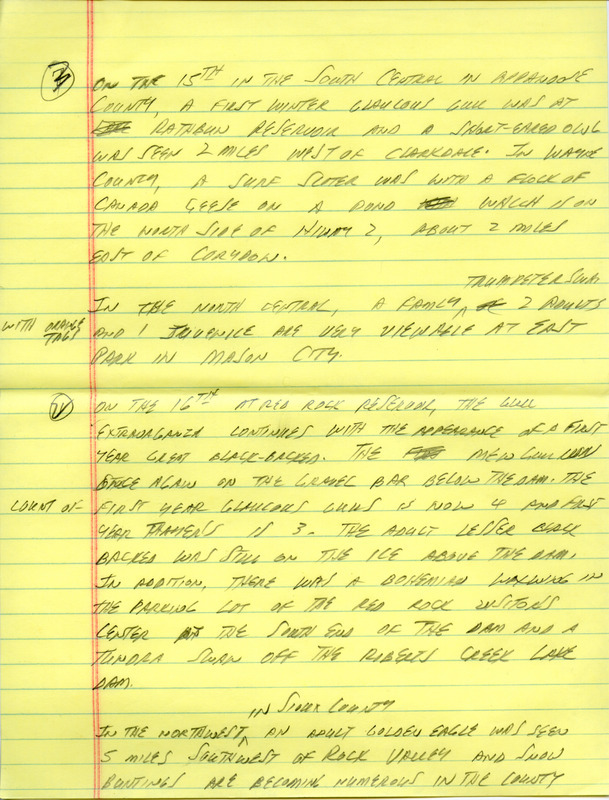 3
ON THE 15TH IN THE SOUTH CENTRAL IN APPANOOSE
COUNTY A FIRST WINTER GLAUCOUS GULL WAS AT
RATHBUN RESERVOIR AND A SHORT-EARED OWL
WAS SEEN 2 MILES WEST OF CLARKDALE. IN WAYNE
COUNTY, A SURF SCOTER WAS WITH A FLOCK OF
CANADA GEESE ON A POND WHICH IS ON
THE NORTH SIDE OF HIWAY 2, ABOUT 2 MILES
EAST OF CORYDON.
TRUMPETER SWAN
IN THE NORTH CENTRAL, A FAMILY 2 ADULTS
WITH ORANGE TAGS
AND 1 JUVENILE ARE VERY VIEWABLE AT EAST
PARK IN MASON CITY.
ON THE 16TH AT RED ROCK RESERVOIR, THE GULL
EXTRAORGANZA CONTINUES WITH THE APPEARANCE OF A FIRST
YEAR GREAT BLACK-BACKED. THE MEW GULL WAS
ONCE AGAIN ON THE GRAVEL BAR BELOW THE DAM. THE
COUNT OF
FIRST YEAR GLAUCOUS GULLS IS NOW 4 AND FIRST
YEAR THAYER'S IS 3. THE ADULT LESSER BLACK
BACKED WAS STILL ON THE ICE ABOVE THE DAM.
IN ADDITION, THERE WAS A BOHEMIAN WAXWING IN
THE PARKING LOT OF THE RED ROCK VISITORS
CENTER AT THE SOUTH END OF THE DAM AND A
TUNDRA SWAN OFF THE ROBERTS CREEK LAKE
DAM.
IN SIOUX COUNTY
IN THE NORTHWEST, AN ADULT GOLDEN EAGLE WAS SEEN
5 MILES SOUTHWEST OF ROCK VALLEY AND SNOW
BUNTINGS ARE BECOMING NUMEROUS IN THE COUNTY